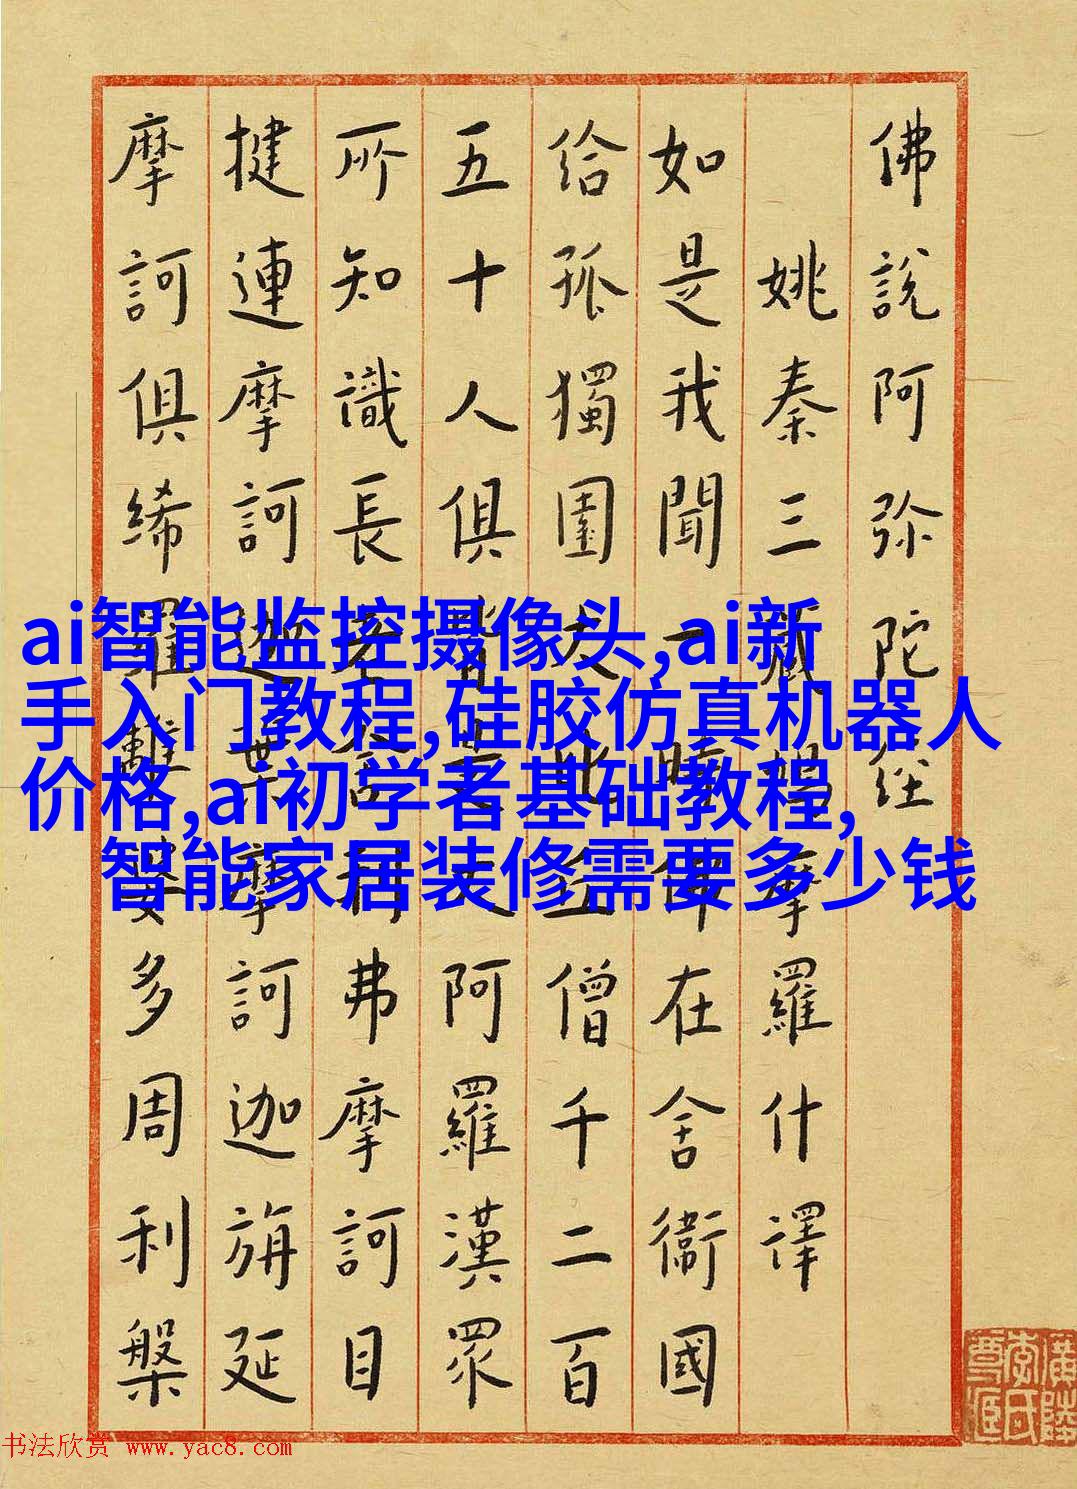 佛說阿弥陀经
姚秦三藏鳩摩羅什譯
如是我聞一時佛在舍衛國
给孤獨園大比丘僧千二百
五十人俱皆是大阿羅漢眾
所知識長老舍利弗摩訶目
揵連摩訶迦葉摩訶迦旃延
摩訶俱絺羅離婆多周利槃
ai智能监控摄像头,ai新
手入门教程,硅胶仿真机器人
价格,ai初学者基础教程,
智能家居装修需要多少钱
书法欣赏 www.yac8.com